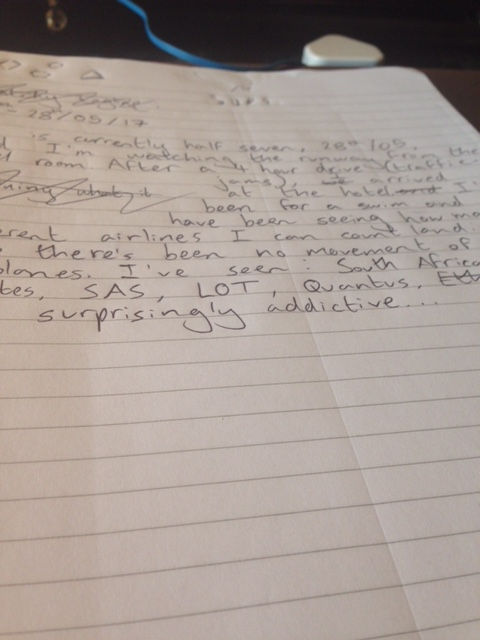 28/05/17
is currently half seven, 28th/05.
I'm watching the runway from the
room After a 4 hour drive (traffic
jams) I arrived
what it at the hotel and I'
been for a swim and
have been seeing how ma
erent airlines I can count land.
there's been no movement of
planes. I've seen: South Africa
tes, SAS, LOT, Quantus,
surprisingly addictive...